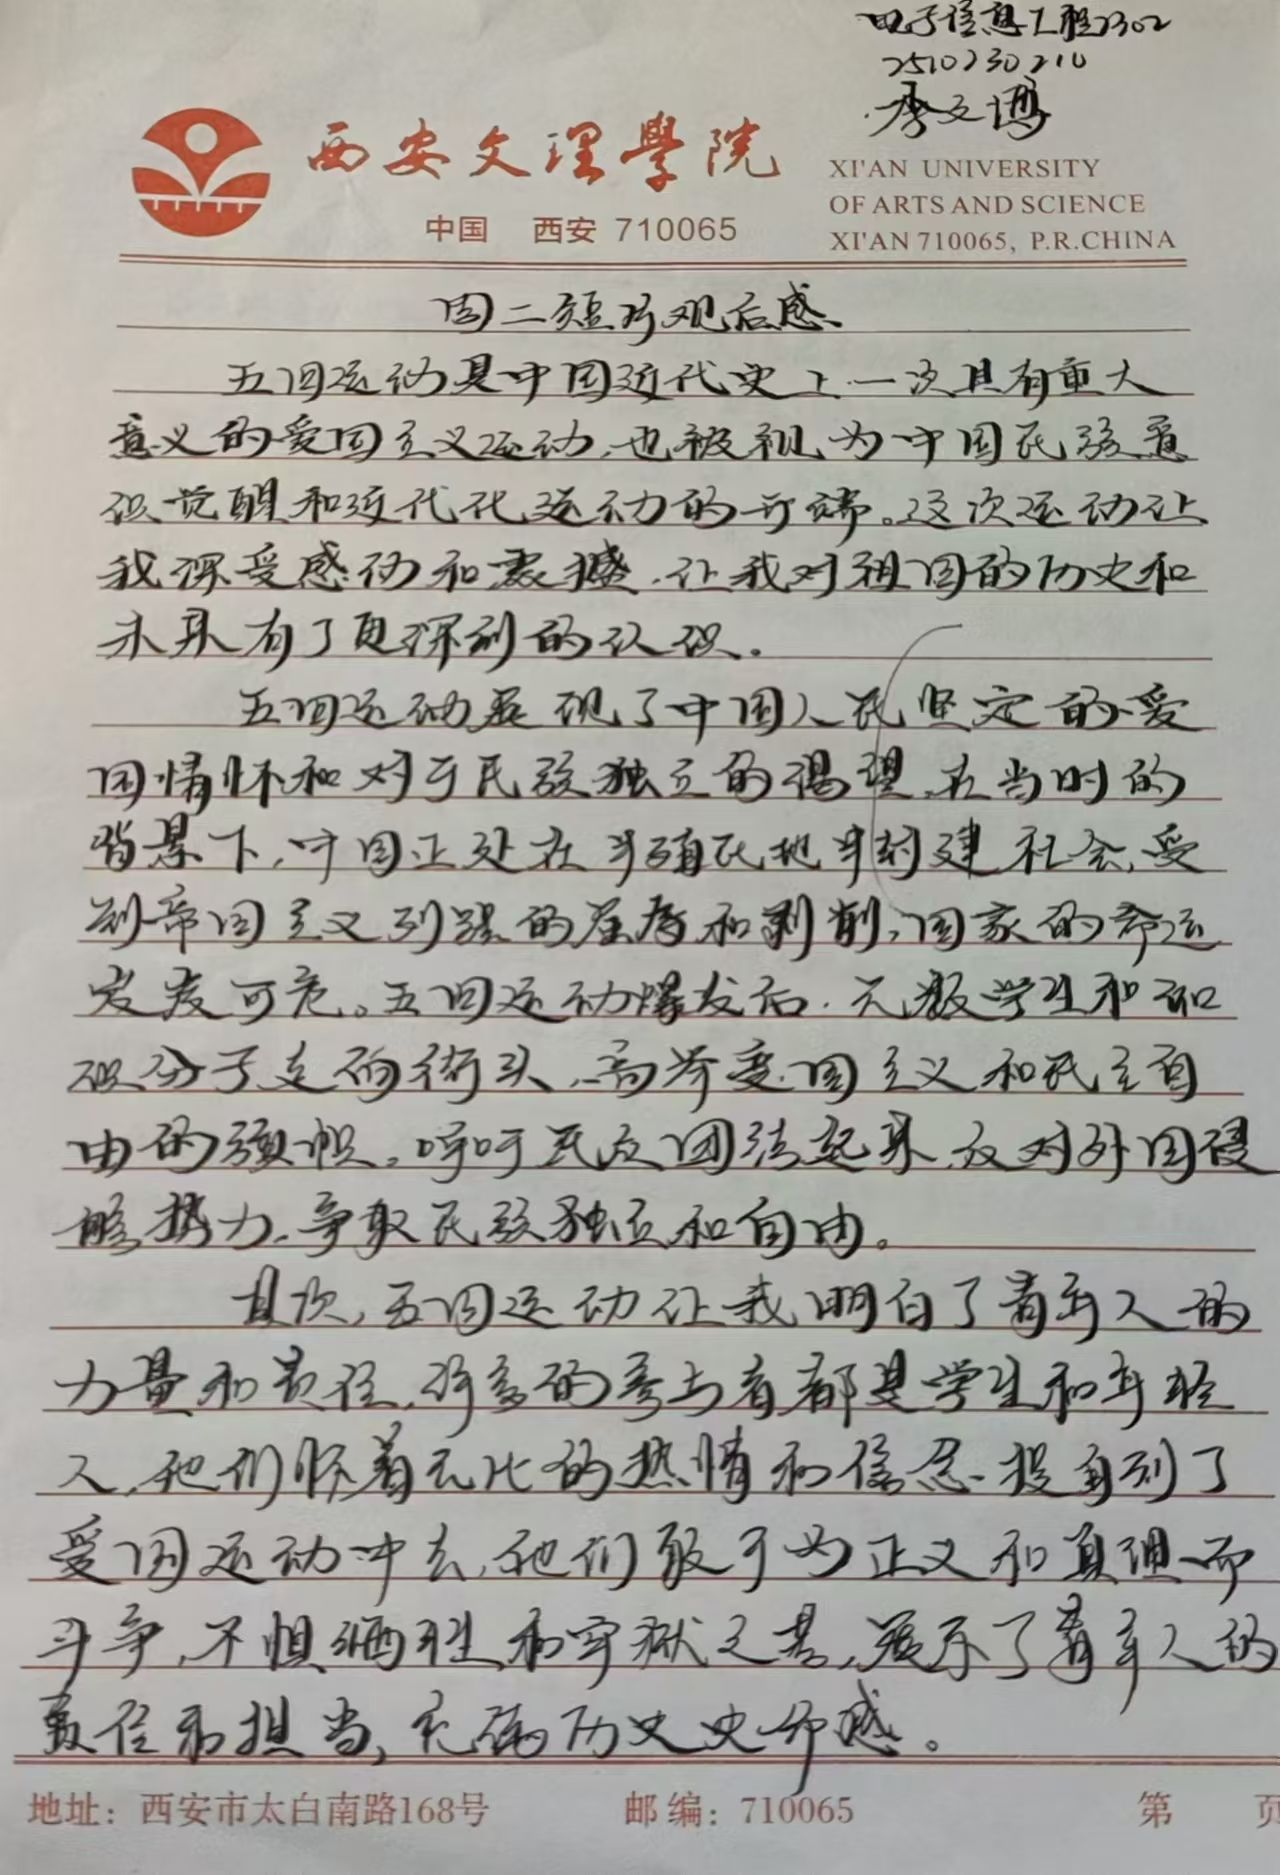 电子信息工程2302
2510230210
李文博
西安文理學院
中国 西安 710065
XI'AN UNIVERSITY
OF ARTS AND SCIENCE
XI'AN 710065, P.R.CHINA
周二短片观后感
五四运动是中国近代史上一次具有重大
意义的爱国主义运动,也被视为中国民族意
识觉醒和近代化运动的开端。这次运动让
我深受感动和震撼,让我对祖国的历史和
未来有了更深刻的认识。
五四运动展现了中国人民坚定的爱
国情怀和对于民族独立的渴望,在当时的
背景下,中国正处在半殖民地半封建社会,受
到帝国主义列强的屈辱和剥削,国家的命运
岌岌可危。五四运动爆发后,无数学生和知
识分子走向街头,高举爱国主义和民主自
由的旗帜。呼吁民众团结起来,反对外国侵
略势力,争取民族独立和自由。
其次,五四运动让我明白了青年人的
力量和责任,许多的参与者都是学生和年轻
人,他们怀着无比的热情和信念投身到了
爱国运动中去,他们敢于为正义和真理而
斗争,不惧牺牲和牢狱之苦,展示了青年人的
责任和担当,充满历史史命感。
地址:西安市太白南路168号 邮编:710065 第 页